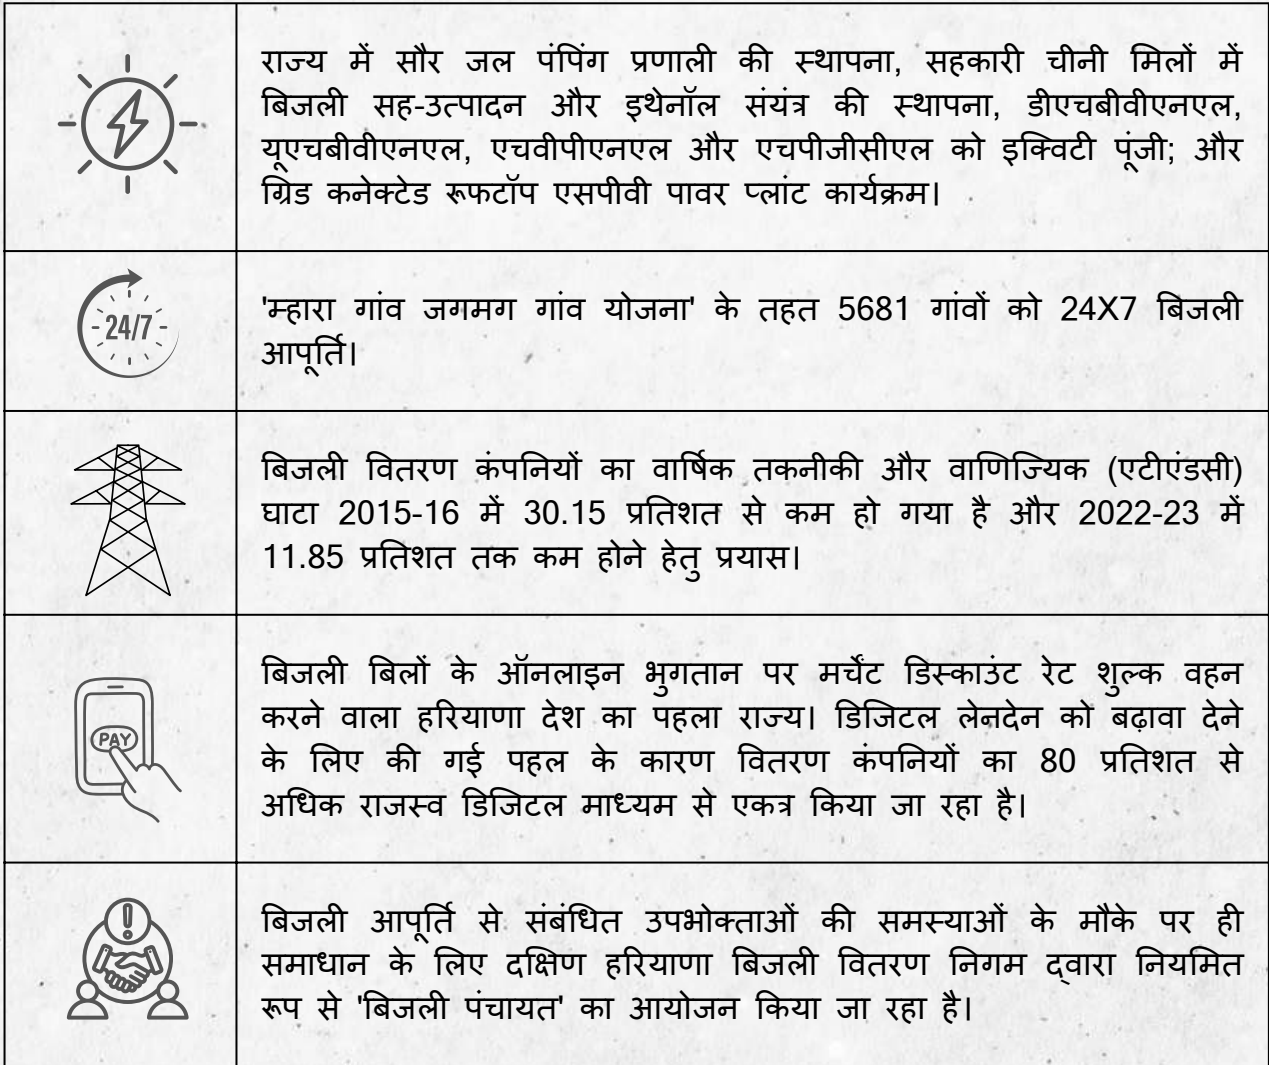 राज्य में सौर जल पंपिंग प्रणाली की स्थापना, सहकारी चीनी मिलों में
बिजली सह-उत्पादन और इथेनॉल संयंत्र की स्थापना, डीएचबीवीएनएल,
यूएचबीवीएनएल, एचवीपीएनएल और एचपीजीसीएल को इक्विटी पूंजी; और
ग्रिड कनेक्टेड रूफटॉप एसपीवी पावर प्लांट कार्यक्रम।
24/7
'म्हारा गांव जगमग गांव योजना' के तहत 5681 गांवों को 24X7 बिजली
आपूर्ति।
बिजली वितरण कंपनियों का वार्षिक तकनीकी और वाणिज्यिक (एटीएंडसी)
घाटा 2015-16 में 30.15 प्रतिशत से कम हो गया है और 2022-23 में
11.85 प्रतिशत तक कम होने हेतु प्रयास।
PAY
बिजली बिलों के ऑनलाइन भुगतान पर मर्चेंट डिस्काउंट रेट शुल्क वहन
करने वाला हरियाणा देश का पहला राज्य। डिजिटल लेनदेन को बढ़ावा देने
के लिए की गई पहल के कारण वितरण कंपनियों का 80 प्रतिशत से
अधिक राजस्व डिजिटल माध्यम से एकत्र किया जा रहा है।
बिजली आपूर्ति से संबंधित उपभोक्ताओं की समस्याओं के मौके पर ही
समाधान के लिए दक्षिण हरियाणा बिजली वितरण निगम द्वारा नियमित
रूप से 'बिजली पंचायत' का आयोजन किया जा रहा है।